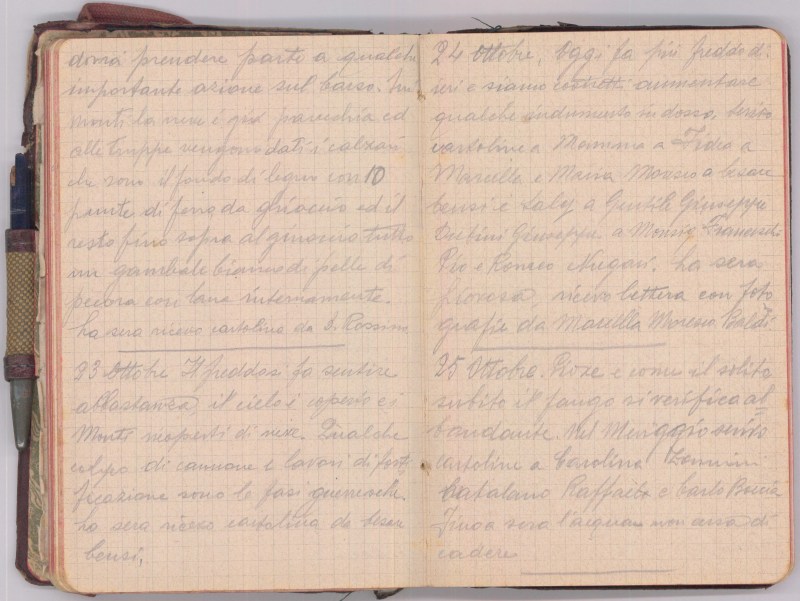 dovrà prendere parte a qualche
importante azione sul Carso. Sui
monti la neve è già parecchia ed
alle truppe vengono dati i calzari
che sono il fondo di legno con 10
punte di ferro da ghiaccio ed il
resto fino sopra al ginocchio tutto
un gambale bianco di pelle di
pecora con lana internamente.
La sera ricevo cartolina da D. Rossini
23 Ottobre Il freddo si fa sentire
abbastanza, il cielo è coperto e i
Monti ricoperti di neve. Qualche
colpo di cannone e lavori di forti
ficazione sono le fasi guerresche.
La sera ricevo cartolina da Cesare
Censi.
24 Ottobre. Oggi fa più freddo di
ieri e siamo costretti aumentare
qualche indumento in dosso. Scrivo
cartoline a Mamma a Fedea a
Marcella e Maria Moresco a Cesare
Censi e Laly a Gentili Giuseppe
Giuseppe. a Monsig. Franceschi
Pio e Romeo La sera
piovosa, ricevo lettera con foto
grafie da Marcella Moresco Baldi
25 Ottobre. Piove e come il solito
subito il fango si verifica ab=
bondante. Nel Meriggio scrivo
cartoline a Carolina
Catalano Raffaele e Carlo
Fino a sera l'acqua non cessa di
cadere